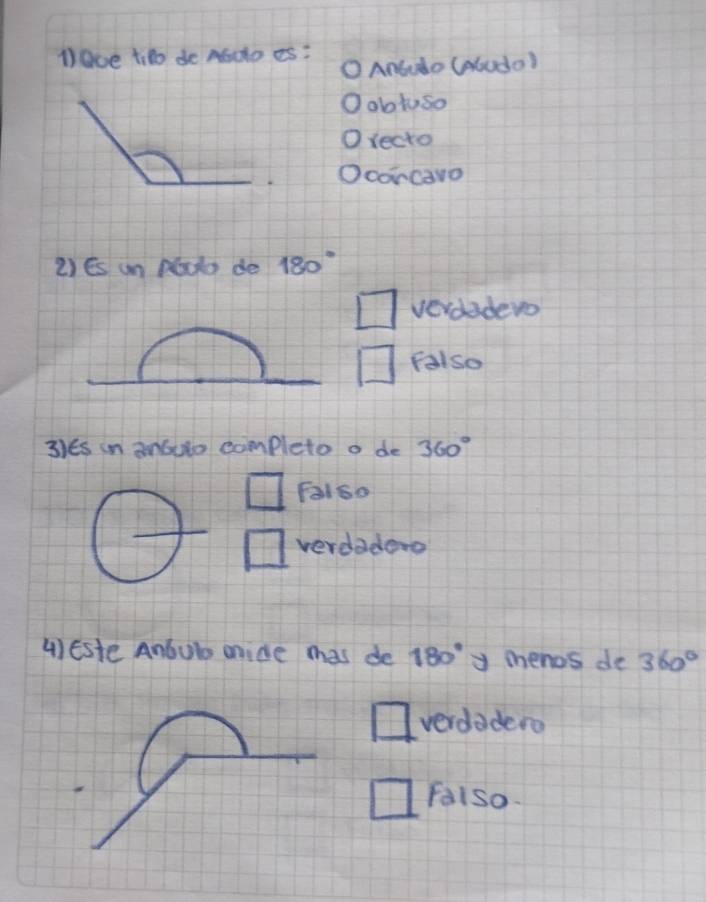 1) Que tipo de Agulo es:
O Angulo (Agudo)
O obtuso
O recto
O concavo
2) Es un Agulo de 180°
verdadero
Falso
3) Es un angulo completo o de 360°
Falso
verdadero
4) Este Angulo mide mas de 180° y menos de 360°
verdadero
Falso.